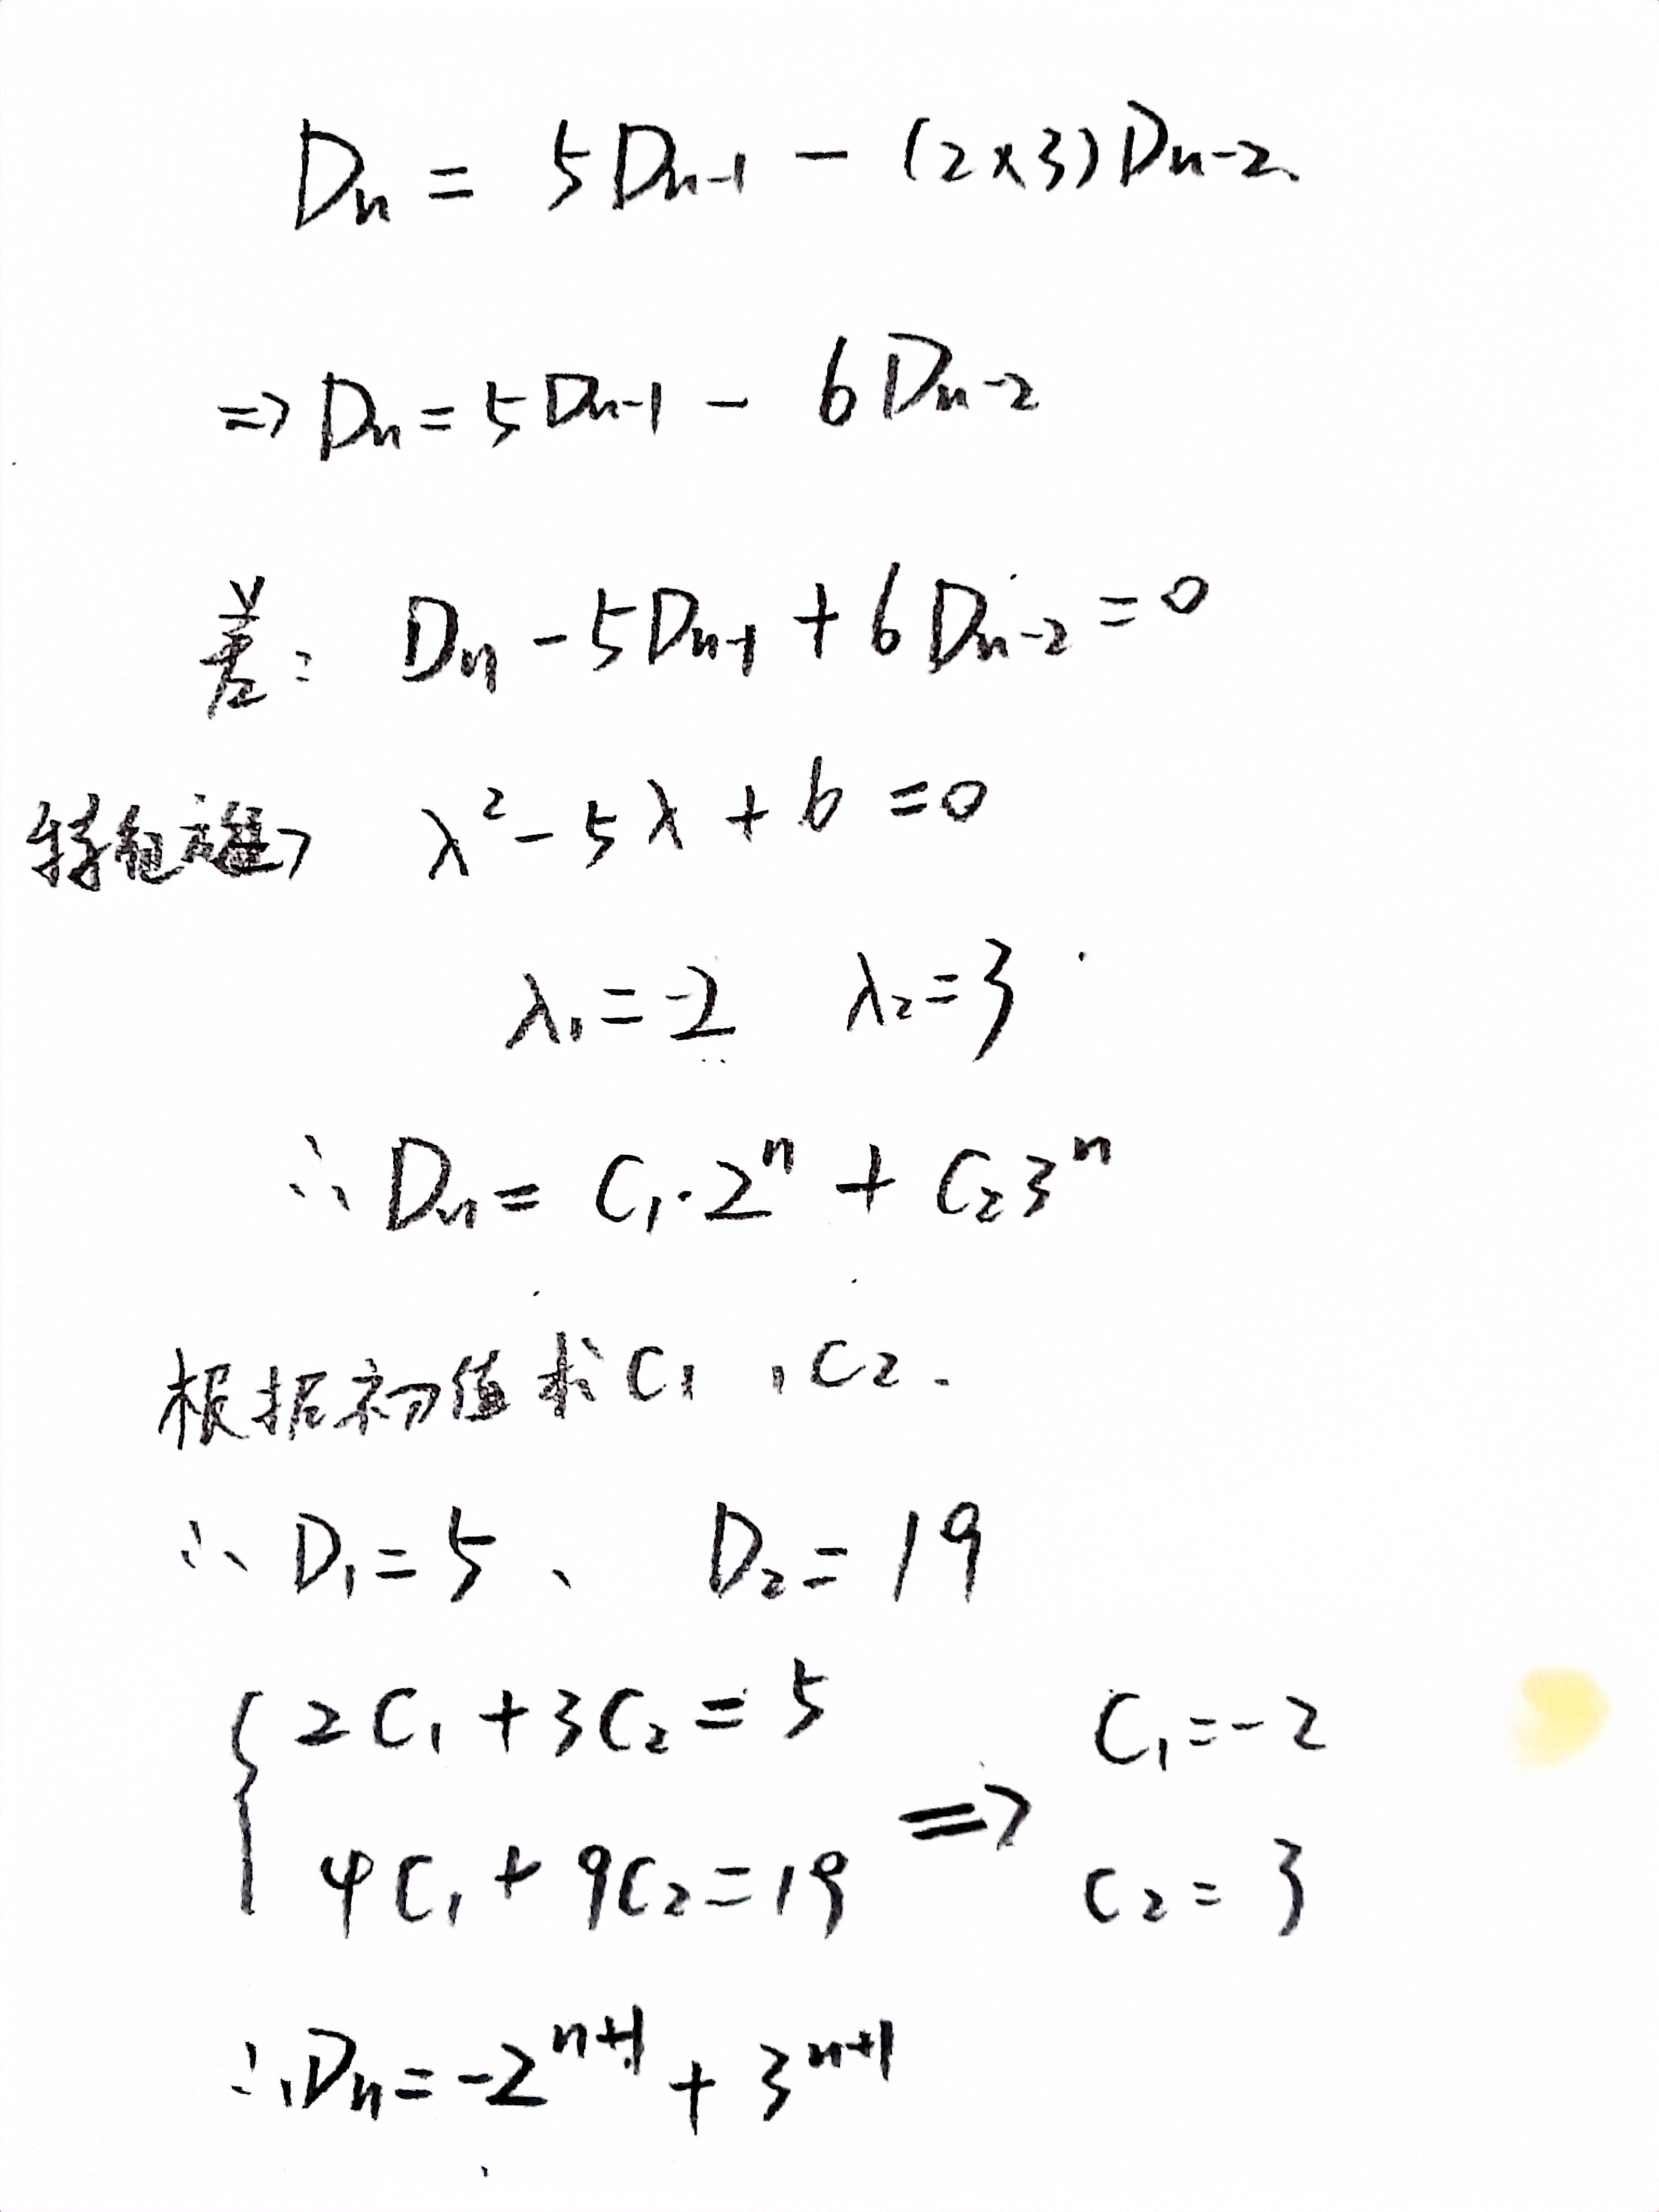 Dn = 5Dn-1 - (2×3)Dn-2
⇒ Dn = 5Dn-1 - 6Dn-2
差: Dn - 5Dn-1 + 6Dn-2 = 0
特征方程 λ² - 5λ + 6 = 0
λ₁ = -2 λ₂ = 3
∴ Dn = C₁·2ⁿ + C₂3ⁿ
根据初值求C₁,C₂.
∴ D₁ = 5、 D₂ = 19
{ 2C₁ + 3C₂ = 5 C₁ = -2
⇒
4C₁ + 9C₂ = 19 C₂ = 3
∴ Dn = -2ⁿ⁺¹ + 3ⁿ⁺¹